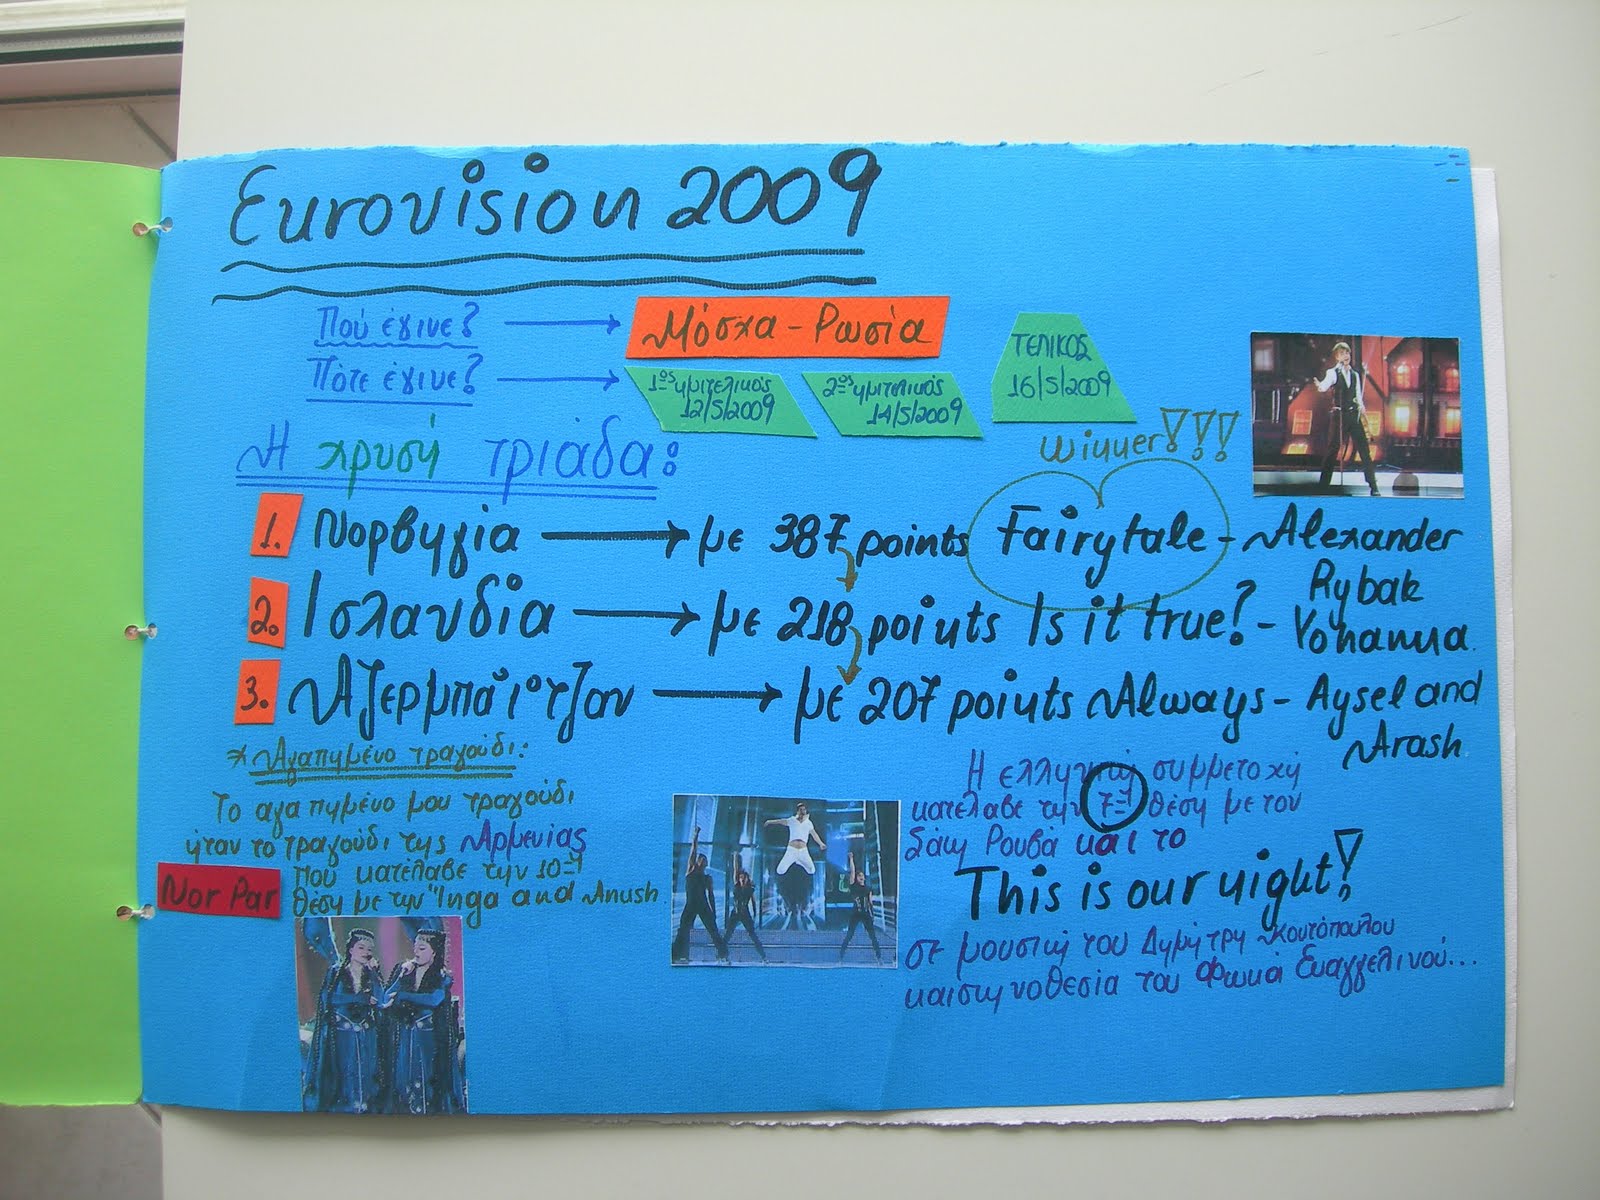 Eurovision 2009
Πού έγινε? Μόσχα - Ρωσία
Πότε έγινε? 1ος ημιτελικός 12/5/2009 2ος ημιτελικός 14/5/2009 ΤΕΛΙΚΟΣ 16/5/2009
Η χρυσή τριάδα:
winner!!!
1. Νορβηγία με 387 points Fairytale - Alexander Rybak
2. Ισλανδία με 218 points Is it true? - Yohanna.
3. Αζερμπαϊτζαν με 207 points Always - Aysel and Arash.
* Αγαπημένο τραγούδι:
Το αγαπημένο μου τραγούδι
ήταν το τραγούδι της Αρμενίας
που κατέλαβε την 10η
θέση με την Inga and Anush.
Nor Par
Η ελληνική συμμετοχή
κατέλαβε την 7η θέση με τον
Σάκη Ρουβά και το
This is our night!
σε μουσική του Δημήτρη Κοντόπουλου
και σκηνοθεσία του Φωκά Ευαγγελινού...